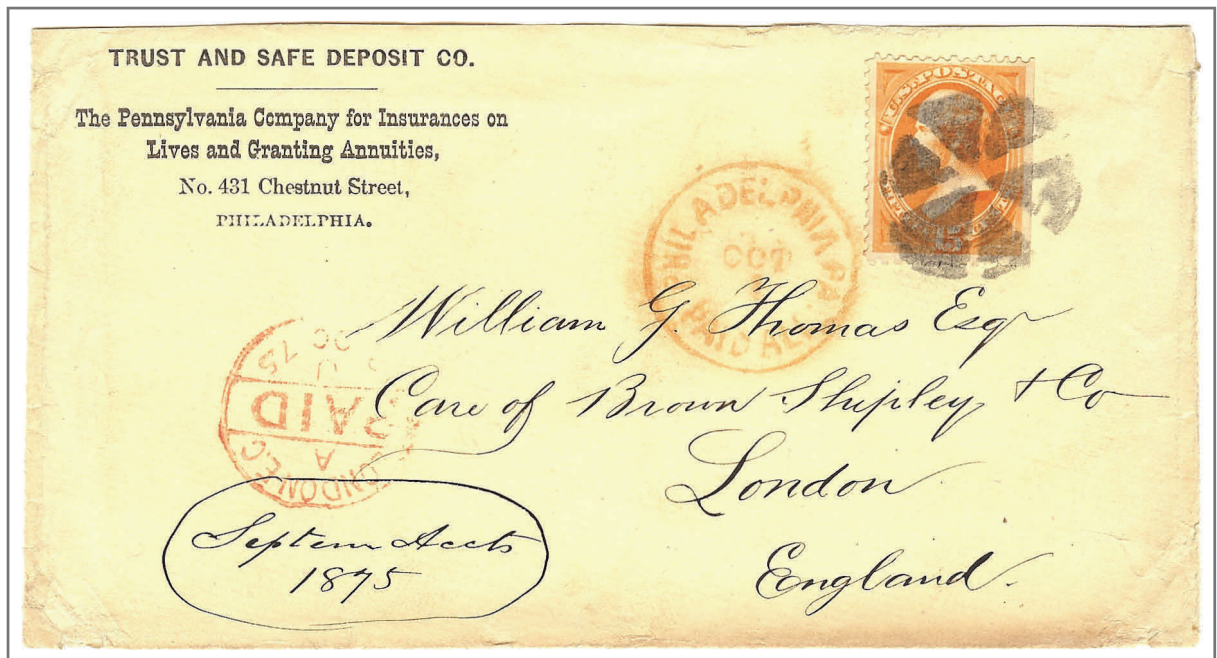 TRUST AND SAFE DEPOSIT CO.
The Pennsylvania Company for Insurances on
Lives and Granting Annuities,
No. 431 Chestnut Street,
PHILADELPHIA.
U.S. POSTAGE
15
PHILADELPHIA PA
OCT
PAID ALL
William G. Thomas Esqr
Care of Brown Shipley & Co
London
England.
LONDON E.C
A
PAID
OC 75
Septem Accts
1875